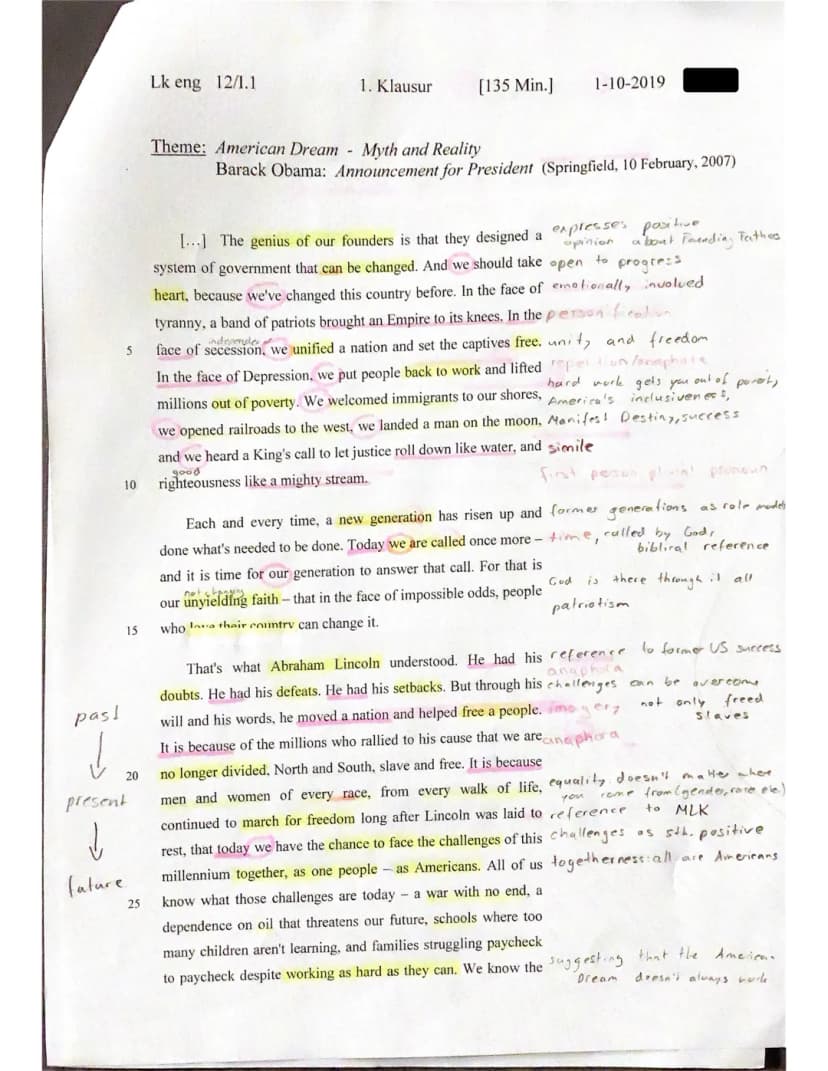 Lk eng 12/I.1 1. Klausur [135 Min.] 1-10-2019
Theme: American Dream - Myth and Reality
Barack Obama: Announcement for President (Springfield, 10 February, 2007)
expresses positive
[...] The genius of our founders is that they designed a opinion about Founding Fathes
system of government that can be changed. And we should take open to progress
heart, because we've changed this country before. In the face of emotionally involved
tyranny, a band of patriots brought an Empire to its knees. In the personification
5 face of secession, we unified a nation and set the captives free. unity and freedom
In the face of Depression, we put people back to work and lifted repetition/anaphora
hard work gets you out of poverty,
millions out of poverty. We welcomed immigrants to our shores, America's inclusiveness,
we opened railroads to the west, we landed a man on the moon, Manifest Destiny, success
and we heard a King's call to let justice roll down like water, and simile
good
10 righteousness like a mighty stream. first person plural pronoun
Each and every time, a new generation has risen up and former generations as role models
done what's needed to be done. Today we are called once more – time, called by God,
biblical reference
and it is time for our generation to answer that call. For that is
our unyielding faith – that in the face of impossible odds, people God is there through it all
patriotism
15 who love their country can change it.
That's what Abraham Lincoln understood. He had his reference to former US success
anaphora
doubts. He had his defeats. He had his setbacks. But through his challenges can be overcome
past will and his words, he moved a nation and helped free a people. imagery not only freed
slaves
It is because of the millions who rallied to his cause that we are anaphora
20 no longer divided, North and South, slave and free. It is because
equality doesn't matter where
present men and women of every race, from every walk of life, you come from (gender, race etc.)
continued to march for freedom long after Lincoln was laid to reference to MLK
rest, that today we have the chance to face the challenges of this challenges as sth. positive
future millennium together, as one people – as Americans. All of us togetherness: all are Americans
25 know what those challenges are today – a war with no end, a
dependence on oil that threatens our future, schools where too
many children aren't learning, and families struggling paycheck
to paycheck despite working as hard as they can. We know the suggesting that the American
Dream doesn't always work